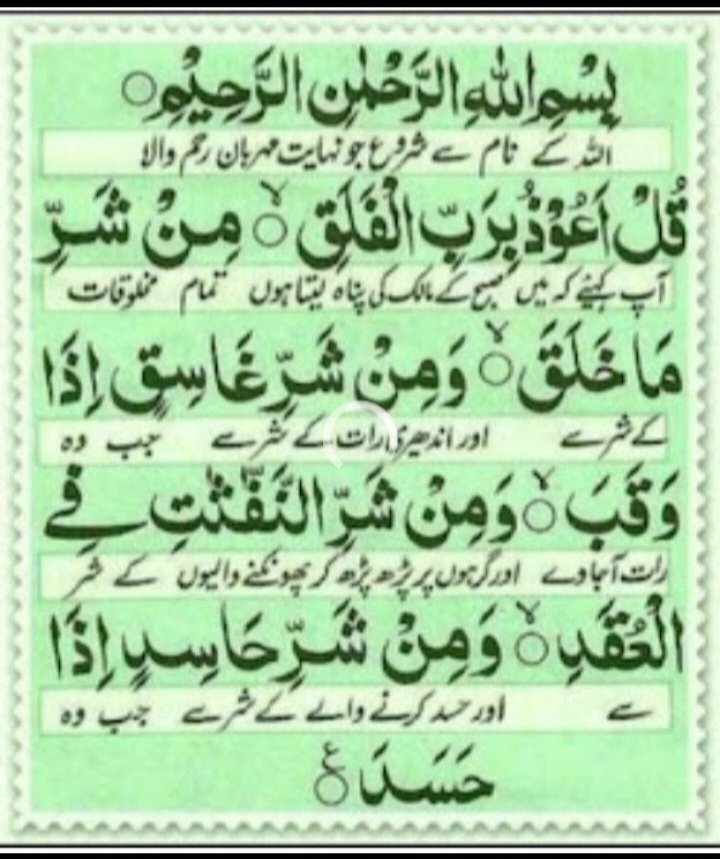 بِسْمِ اللّٰهِ الرَّحْمٰنِ الرَّحِيْمِ ○
اللہ کے نام سے شروع جو نہایت مہربان رحم والا
قُلْ اَعُوْذُ بِرَبِّ الْفَلَقِ ○ۙ مِنْ شَرِّ
آپ کہئیے کہ میں صبح کے مالک کی پناہ لیتا ہوں تمام مخلوقات
مَا خَلَقَ ○ۙ وَمِنْ شَرِّ غَاسِقٍ اِذَا
کے شر سے اور اندھیری رات کے شر سے جب وہ
وَقَبَ ○ۙ وَمِنْ شَرِّ النَّفّٰثٰتِ فِے
رات آجاوے اور گرہوں پر پڑھ پڑھ کر پھونکنے والیوں کے شر
الْعُقَدِ ○ۙ وَمِنْ شَرِّ حَاسِدٍ اِذَا
سے اور حسد کرنے والے کے شر سے جب وہ
حَسَدَ ○ۧ